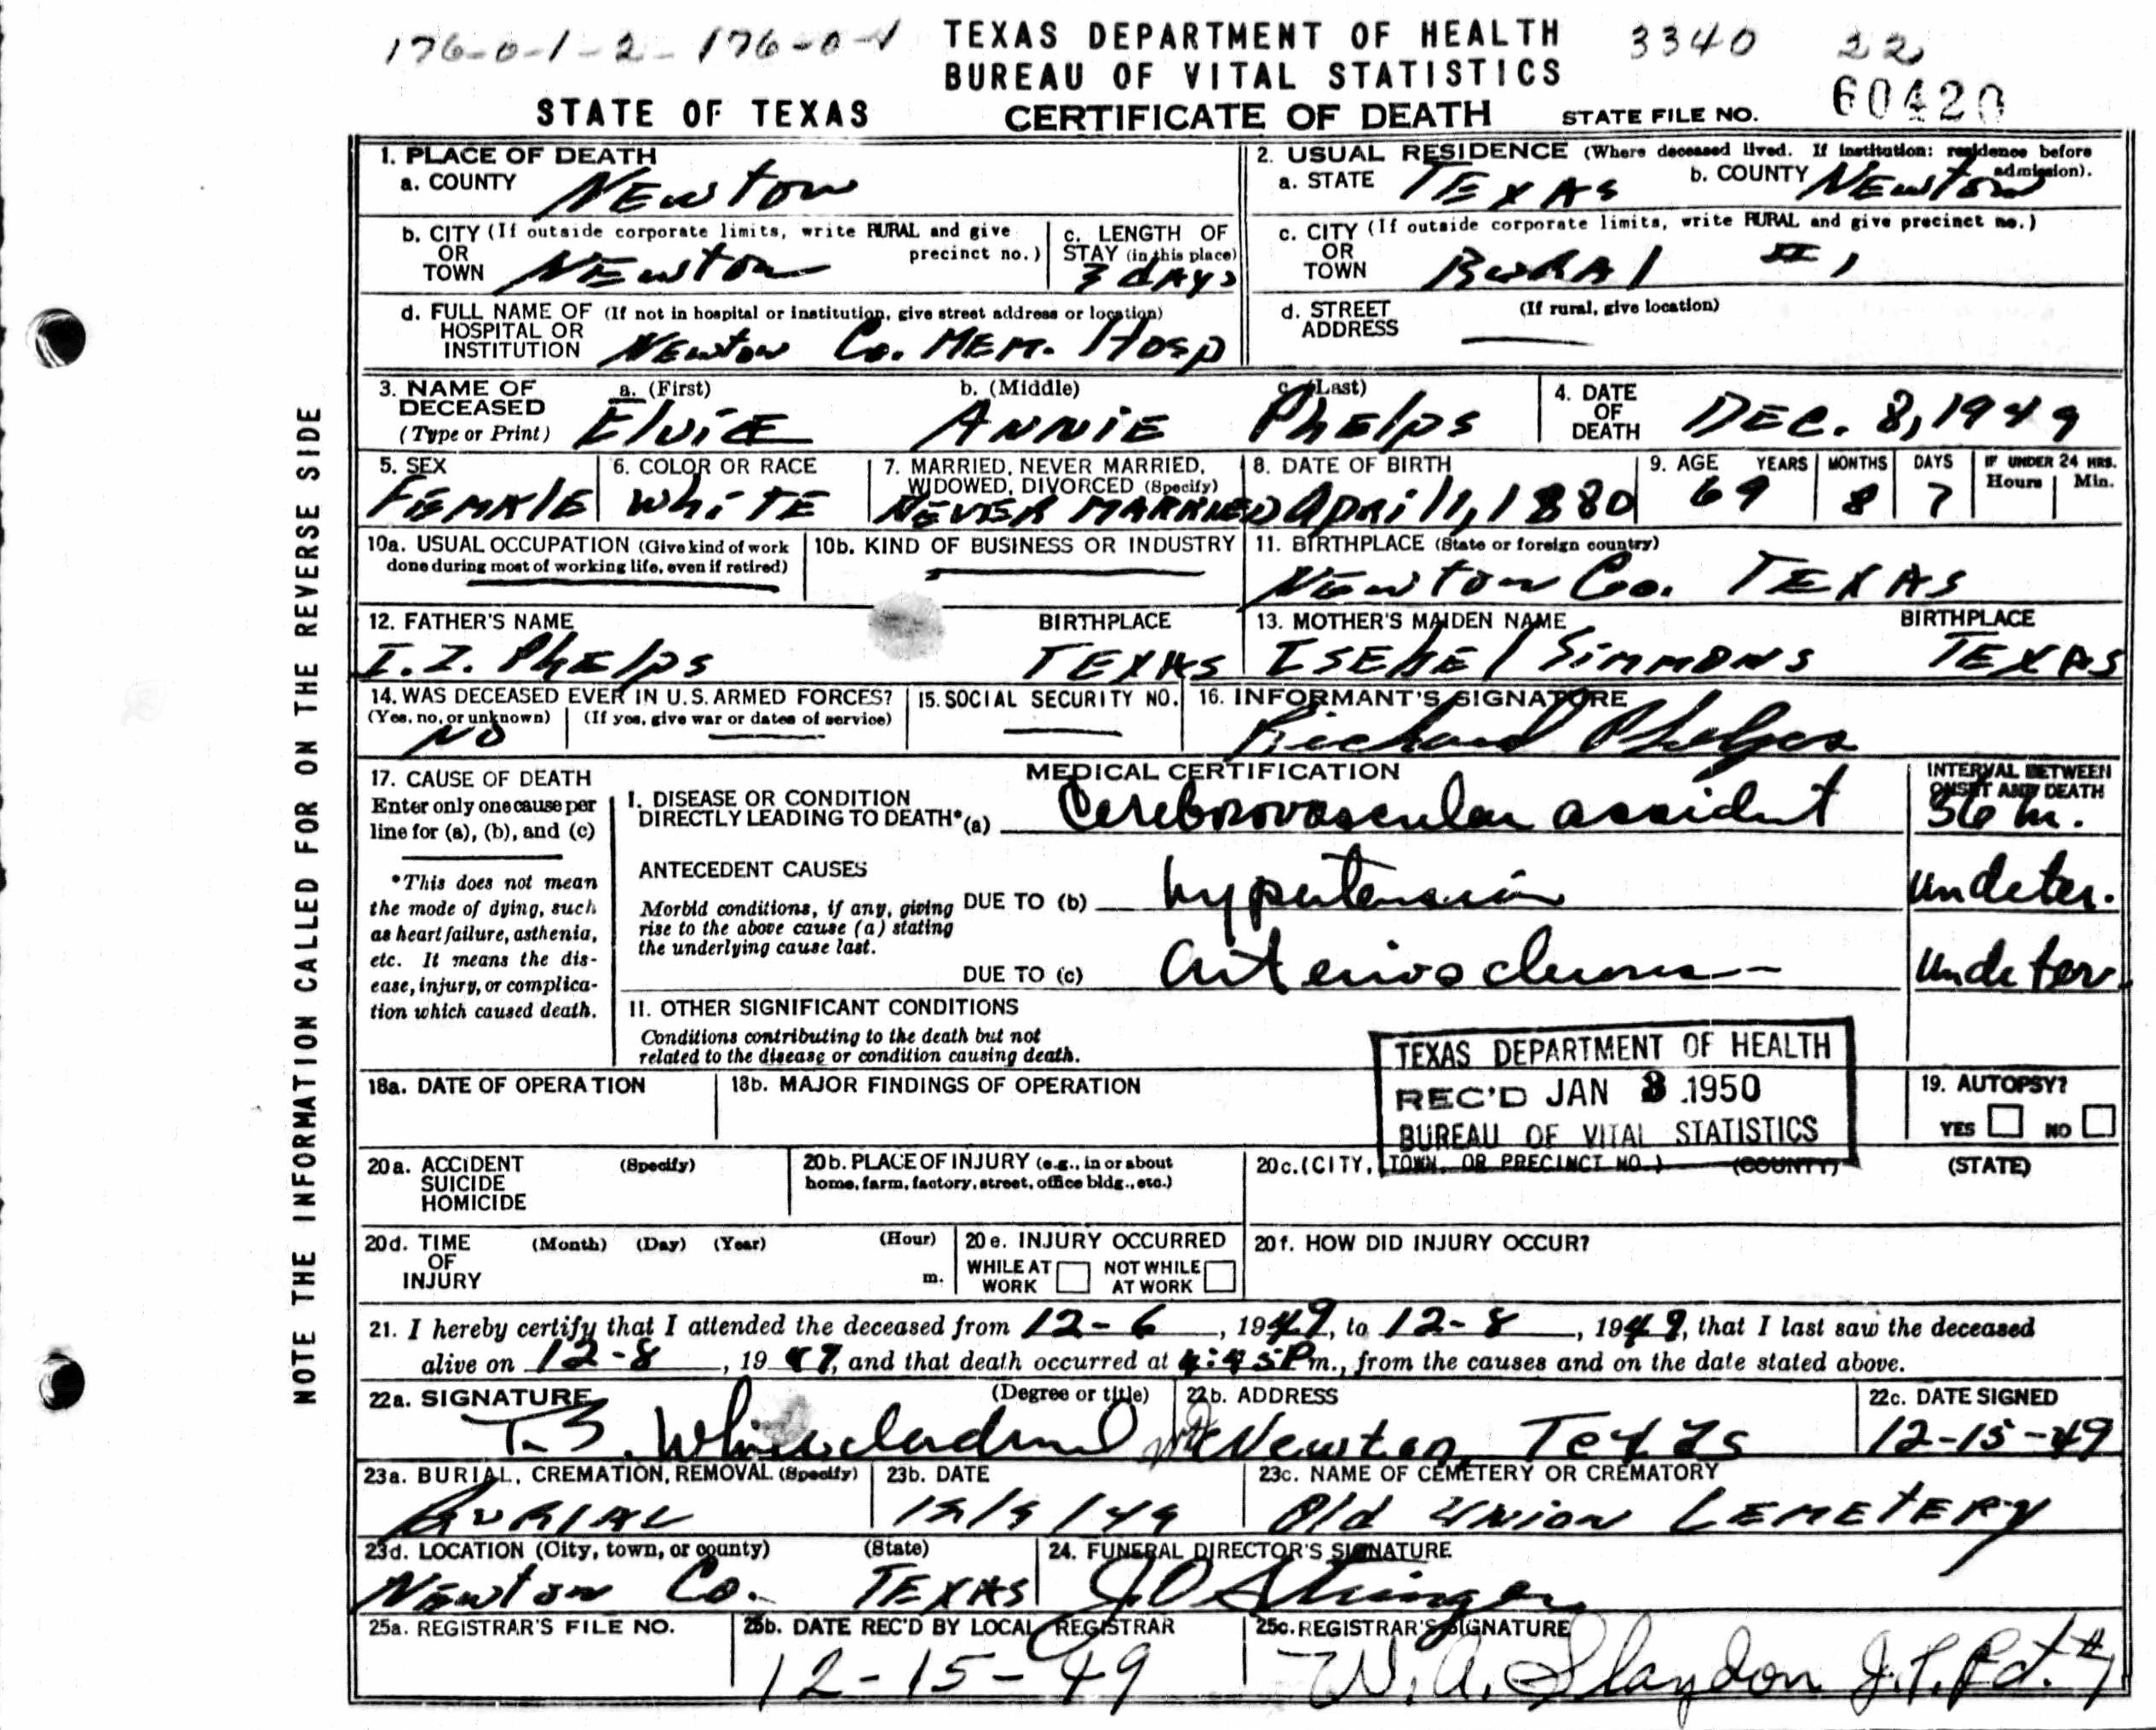 176-0-1-2-176-0-1 TEXAS DEPARTMENT OF HEALTH 3340 22
BUREAU OF VITAL STATISTICS
STATE OF TEXAS CERTIFICATE OF DEATH STATE FILE NO. 60420
NOTE THE INFORMATION CALLED FOR ON THE REVERSE SIDE
1. PLACE OF DEATH
a. COUNTY NEwton
2. USUAL RESIDENCE (Where deceased lived. If institution: residence before admission).
a. STATE TEXAS b. COUNTY NEwton
b. CITY (If outside corporate limits, write RURAL and give precinct no.)
OR
TOWN NEwton
c. LENGTH OF
STAY (in this place)
3 dAys
c. CITY (If outside corporate limits, write RURAL and give precinct no.)
OR
TOWN RurAl
d. FULL NAME OF (If not in hospital or institution, give street address or location)
HOSPITAL OR
INSTITUTION NEwton Co. MEM. Hosp
d. STREET (If rural, give location)
ADDRESS
3. NAME OF DECEASED (Type or Print)
a. (First) b. (Middle) c. (Last)
ElviE ANNiE PhElps
4. DATE OF DEATH DEC. 8, 1949
5. SEX
FEMAlE
6. COLOR OR RACE
WhiTE
7. MARRIED, NEVER MARRIED, WIDOWED, DIVORCED (Specify)
NEVER MARRIED
8. DATE OF BIRTH
April 1, 1880
9. AGE YEARS MONTHS DAYS IF UNDER 24 HRS. Hours Min.
69 8 7
10a. USUAL OCCUPATION (Give kind of work done during most of working life, even if retired)
10b. KIND OF BUSINESS OR INDUSTRY
11. BIRTHPLACE (State or foreign country)
NEwton Co. TEXAS
12. FATHER'S NAME BIRTHPLACE
I. I. PhElps TEXAS
13. MOTHER'S MAIDEN NAME BIRTHPLACE
Simmons TEXAS
14. WAS DECEASED EVER IN U.S. ARMED FORCES?
(Yes, no, or unknown) (If yes, give war or dates of service)
NO
15. SOCIAL SECURITY NO.
16. INFORMANT'S SIGNATURE
Richard Phelps
MEDICAL CERTIFICATION
17. CAUSE OF DEATH
Enter only one cause per
line for (a), (b), and (c)
*This does not mean
the mode of dying, such
as heart failure, asthenia,
etc. It means the dis-
ease, injury, or complica-
tion which caused death.
I. DISEASE OR CONDITION
DIRECTLY LEADING TO DEATH*(a) Cerebrovascular assident
INTERVAL BETWEEN
ONSET AND DEATH
36 hr.
ANTECEDENT CAUSES
Morbid conditions, if any, giving
rise to the above cause (a) stating
the underlying cause last.
DUE TO (b) hypertension undeter.
DUE TO (c) Arteriosclerosis undeter.
II. OTHER SIGNIFICANT CONDITIONS
Conditions contributing to the death but not
related to the disease or condition causing death.
TEXAS DEPARTMENT OF HEALTH
REC'D JAN 3 1950
BUREAU OF VITAL STATISTICS
18a. DATE OF OPERATION
18b. MAJOR FINDINGS OF OPERATION
19. AUTOPSY?
YES NO
20a. ACCIDENT (Specify)
SUICIDE
HOMICIDE
20b. PLACE OF INJURY (e.g., in or about
home, farm, factory, street, office bldg., etc.)
20c. (CITY, TOWN, OR PRECINCT NO.) (COUNTY) (STATE)
20d. TIME (Month) (Day) (Year) (Hour)
OF
INJURY m.
20e. INJURY OCCURRED
WHILE AT WORK NOT WHILE AT WORK
20f. HOW DID INJURY OCCUR?
21. I hereby certify that I attended the deceased from 12-6, 1949, to 12-8, 1949, that I last saw the deceased
alive on 12-8, 1949, and that death occurred at 4:45 P m., from the causes and on the date stated above.
22a. SIGNATURE (Degree or title)
22b. ADDRESS
Newton Texas
22c. DATE SIGNED
12-15-49
23a. BURIAL, CREMATION, REMOVAL (Specify)
BURIAL
23b. DATE
12/9/49
23c. NAME OF CEMETERY OR CREMATORY
Old Union CEMETERY
23d. LOCATION (City, town, or county) (State)
NEwton Co. TEXAS
24. FUNERAL DIRECTOR'S SIGNATURE
J.O. Stringer
25a. REGISTRAR'S FILE NO.
25b. DATE REC'D BY LOCAL REGISTRAR
12-15-49
25c. REGISTRAR'S SIGNATURE
W. A. Slaydon J.P. Pct. #1